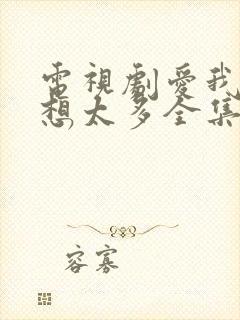 電視劇愛我
想太多全集
容寡